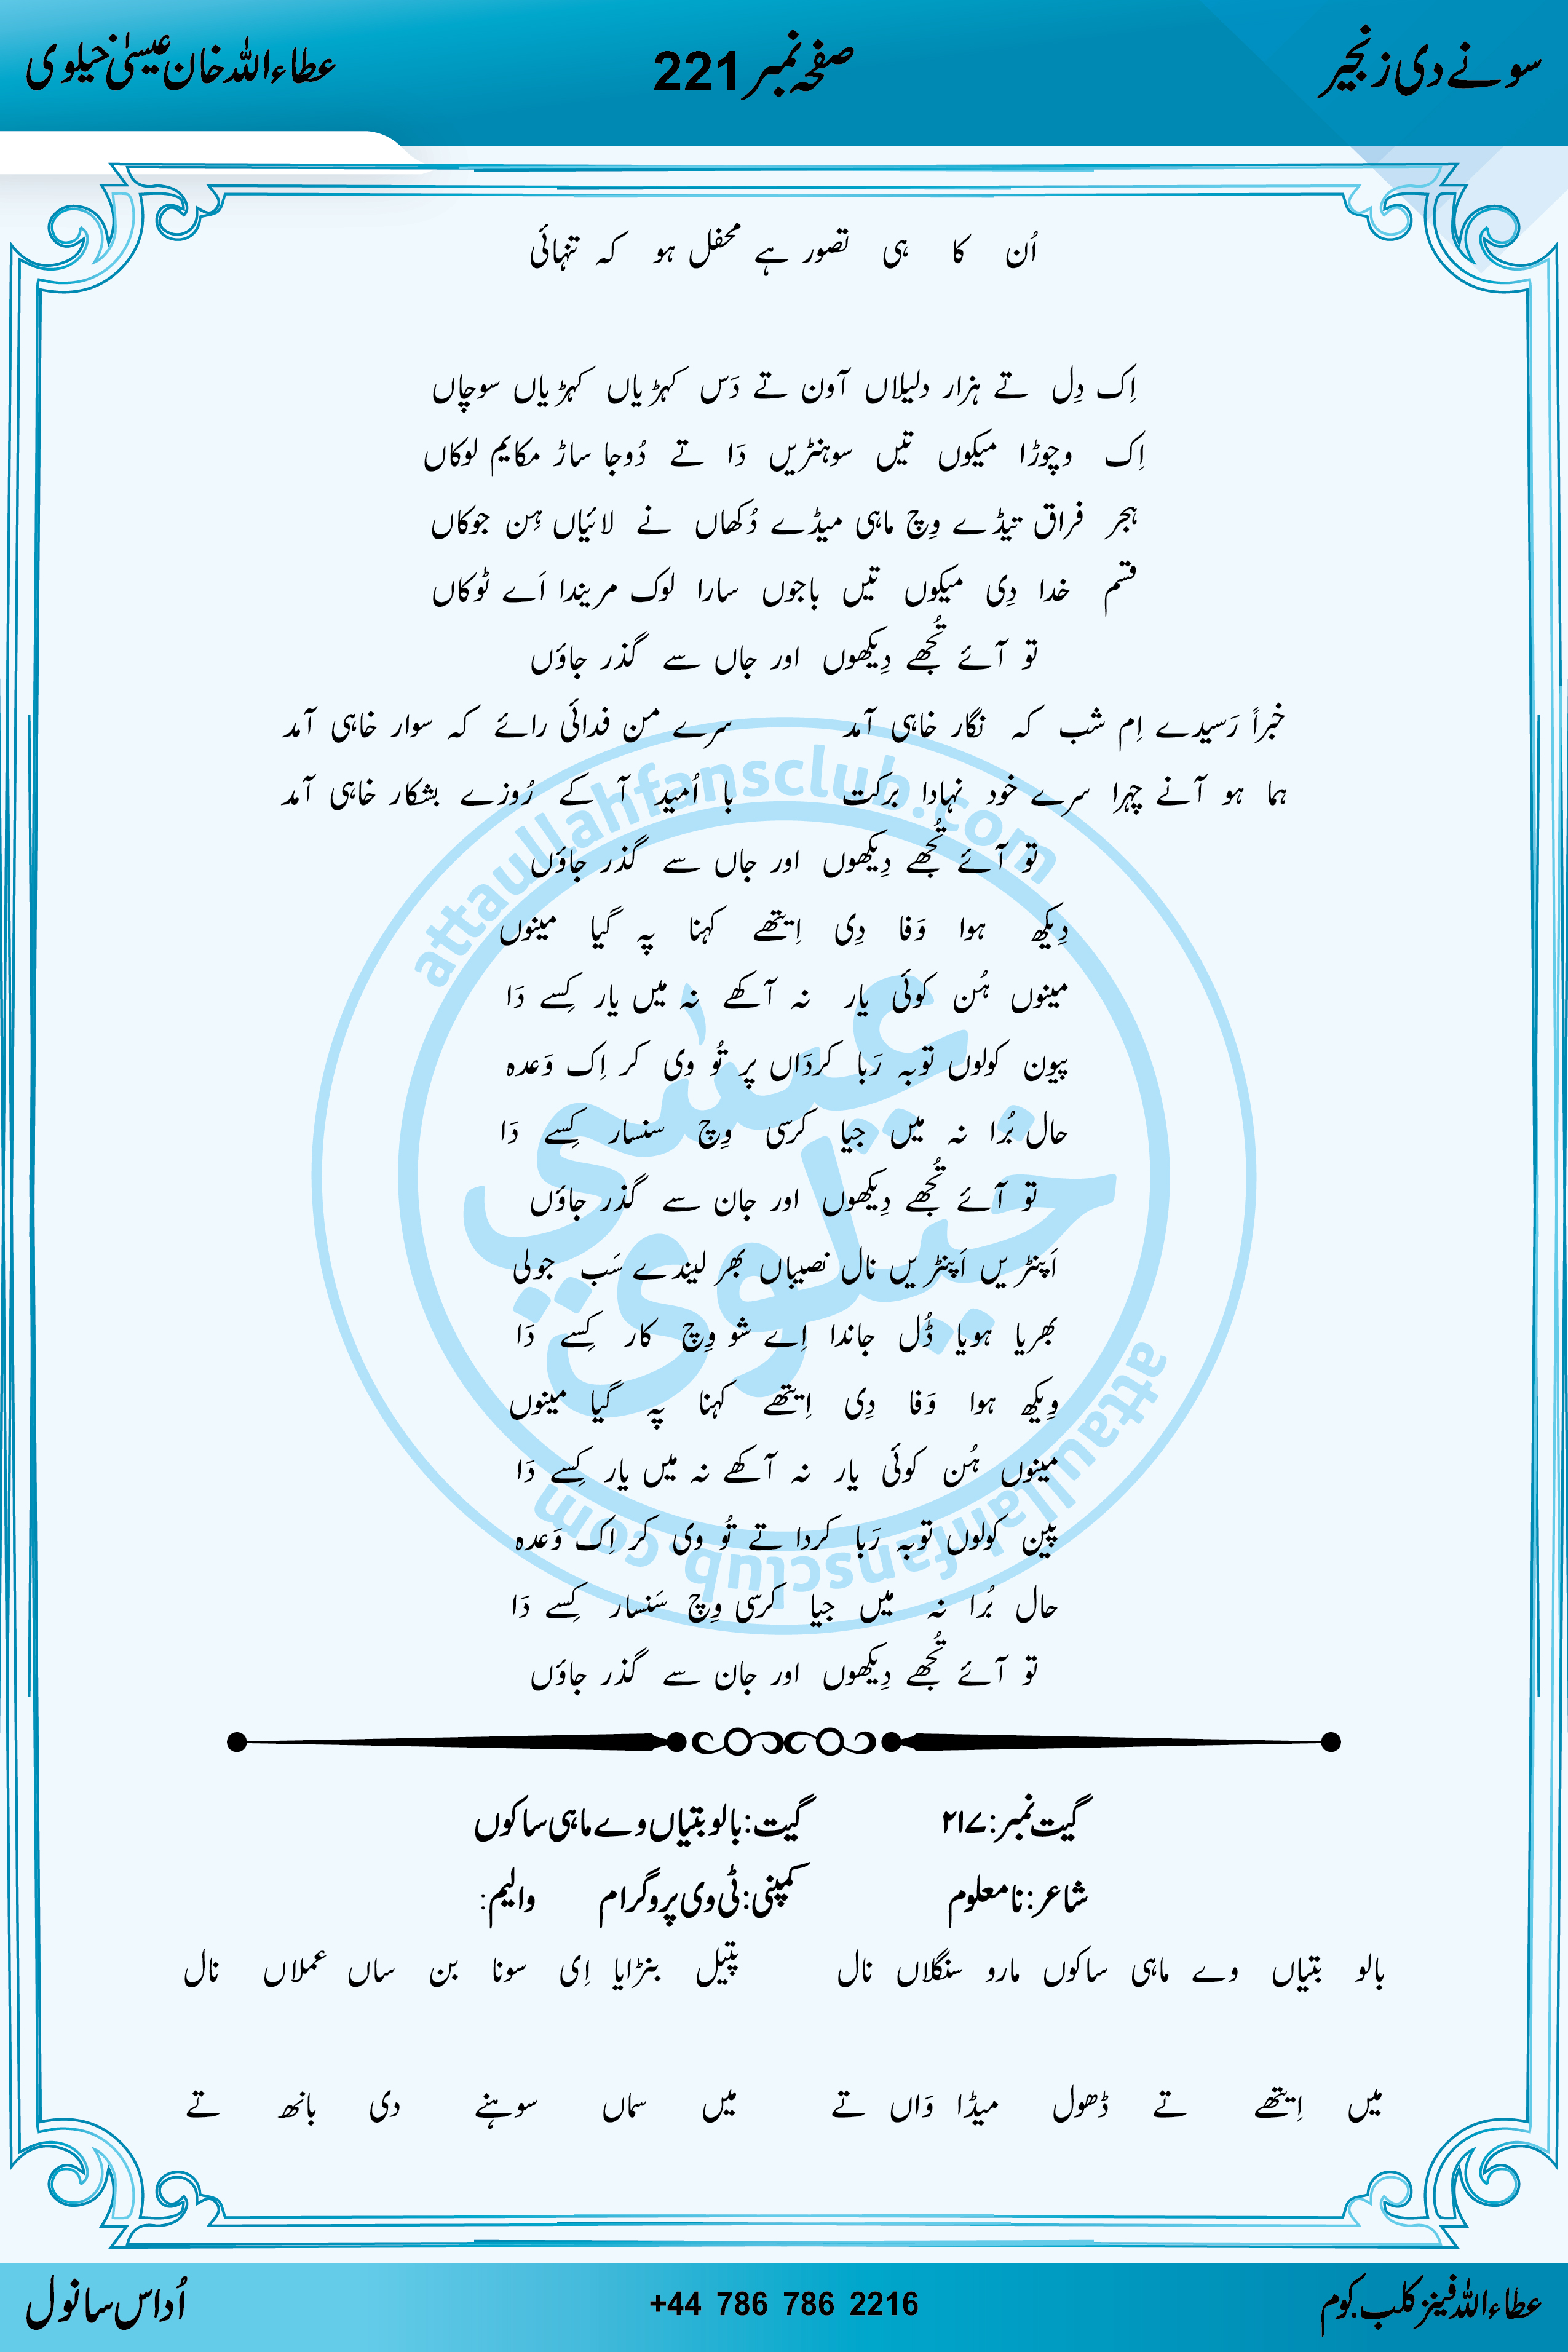 سونے دی زنجیر صفحہ نمبر 221 عطاءاللہ خان عیسیٰ خیلوی
اُن کا ہی تصور ہے محفل ہو کہ تنہائی
اِک دِل تے ہزار دلیلاں آون تے دَس کہڑیاں کہڑیاں سوچاں
اِک وچھوڑا میکوں تیں سوہنڑیں دَا تے دُوجا ساڑ مکایم لوکاں
ہجر فراق تیڈے وِچ ماہی میڈے دُکھاں نے لائیاں ہِن جوکاں
قسم خدا دِی میکوں تیں باجوں سارا لوک مریندا اَے ٹوکاں
تو آئے تُجھے دِیکھوں اور جاں سے گذر جاؤں
خبراً رَسیدے اِم شب کہ نگار خاہی آمد سرے من فدائی رائے کہ سوار خاہی آمد
ہما ہو آنے چہرا سرے خود نہادا برکت با اُمید آ کے رُوزے بشکار خاہی آمد
تو آئے تُجھے دِیکھوں اور جاں سے گذر جاؤں
دِیکھ ہوا وَفا دِی اِیتھے کہنا پہ گیا مینوں
مینوں ہُن کوئی یار نہ آکھے نہ میں یار کِسے دَا
پیون کولوں توبہ رَبا کردَاں پر تُو وی کر اِک وَعدہ
حال بُرا نہ میں جیا کرسی وِچ سنسار کِسے دَا
تو آئے تُجھے دِیکھوں اور جان سے گذر جاؤں
اَپنڑیں اَپنڑیں نال نصیباں بھر لیندے سَب جولی
بھریا ہویا ڈُل جاندا اِے شو وِچ کار کِسے دَا
وِیکھ ہوا وَفا دِی اِیتھے کہنا پہ گیا مینوں
مینوں ہُن کوئی یار نہ آکھے نہ میں یار کِسے دَا
پین کولوں توبہ رَبا کردا تے تُو وی کر اِک وَعدہ
حال بُرا نہ میں جیا کرسی وِچ سَنسار کِسے دَا
تو آئے تُجھے دِیکھوں اور جان سے گذر جاؤں
گیت نمبر: ۲۱۷ گیت: بالو بتیاں وے ماہی ساکوں
شاعر: نامعلوم کمپنی: ٹی وی پروگرام والیم:
بالو بتیاں وے ماہی ساکوں مارو سنگلاں نال پتیل بنڑایا اِی سونا بن ساں عملاں نال
میں اِیتھے تے ڈھول میڈا وَاں تے میں سماں سوہنے دی بانھ تے
عطاءاللہ فینز کلب.کوم +44 786 786 2216 اُداس سانول
attaullahfansclub.com
عیسٰی
خیلوی
attaullahfansclub.com